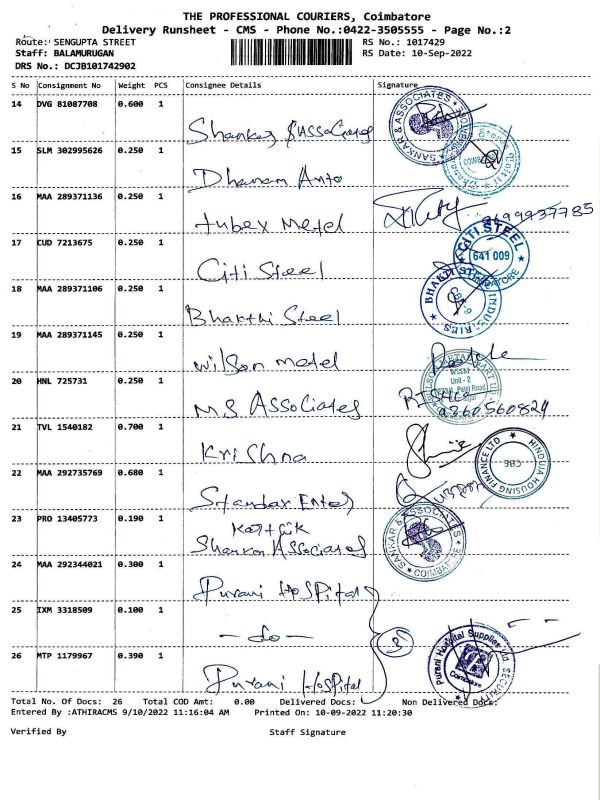 THE PROFESSIONAL COURIERS, Coimbatore
Delivery Runsheet - CMS - Phone No.:0422-3505555 - Page No.:2
Route: SENGUPTA STREET
RS No.: 1017429
Staff: BALAMURUGAN
RS Date: 10-Sep-2022
DRS No.: DCJB101742902
S No Consignment No Weight PCS Consignee Details Signature
14 DVG 81087708 0.600 1
SANKAR & ASSOCIATES
15 SLM 302995626 0.250 1
16 MAA 289371136 0.250 1 tubex Metel
17 CUD 7213675 0.250 1 Citi Steel
CITI STEEL 641 009
18 MAA 289371106 0.250 1 Bharthi Steel
BHARTHI STEEL INDUSTRIES
19 MAA 289371145 0.250 1 Wilson metel
Unit - 2
20 HNL 725731 0.250 1 MS Associates
9360560824
21 TVL 1540182 0.700 1 Krishna
HINDUJA HOUSING FINANCE LTD CBE
22 MAA 292735769 0.680 1
23 PRO 13405773 0.190 1 Karthik
SANKAR & ASSOCIATES COIMBATORE
24 MAA 292344021 0.300 1 Purani Hospital
25 IXM 3318509 0.100 1 - do -
3
26 MTP 1179967 0.390 1 Purani Hospital
Purani Hospital Supplies SECURITY Coimbatore
Total No. Of Docs: 26 Total COD Amt: 0.00 Delivered Docs: Non Delivered Docs:
Entered By :ATHIRACMS 9/10/2022 11:16:04 AM Printed On: 10-09-2022 11:20:30
Verified By Staff Signature